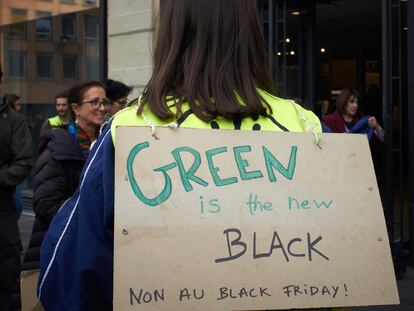 GREEN
is the new
BLACK
NON AU BLACK FRIDAY!